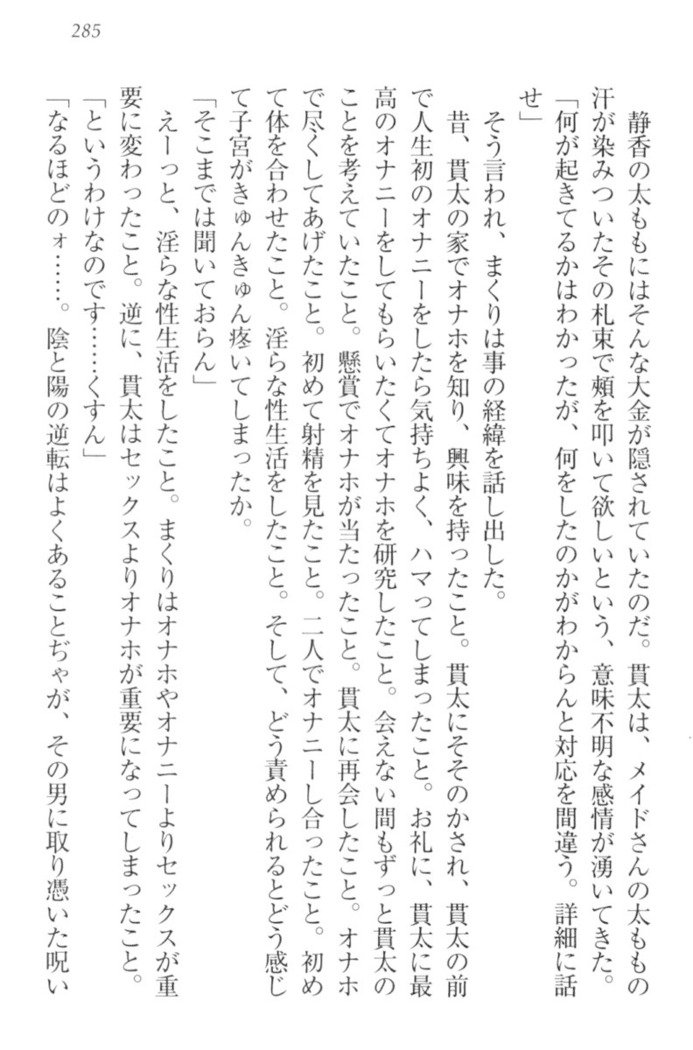 285
静香の太ももにはそんな大金が隠されていたのだ。貫太は、メイドさんの太ももの
汗が染みついたその札束で頰を叩いて欲しいという、意味不明な感情が湧いてきた。
「何が起きてるかはわかったが、何をしたのかがわからんと対応を間違う。詳細に話
せ」
そう言われ、まくりは事の経緯を話し出した。
昔、貫太の家でオナホを知り、興味を持ったこと。貫太にそそのかされ、貫太の前
で人生初のオナニーをしたら気持ちよく、ハマってしまったこと。お礼に、貫太に最
高のオナニーをしてもらいたくてオナホを研究したこと。会えない間もずっと貫太の
ことを考えていたこと。懸賞でオナホが当たったこと。貫太に再会したこと。オナホ
で尽くしてあげたこと。初めて射精を見たこと。二人でオナニーし合ったこと。初め
て体を合わせたこと。淫らな性生活をしたこと。そして、どう責められるとどう感じ
て子宮がきゅんきゅん疼いてしまったか。
「そこまでは聞いておらん」
えーっと、淫らな性生活をしたこと。まくりはオナホやオナニーよりセックスが重
要に変わったこと。逆に、貫太はセックスよりオナホが重要になってしまったこと。
「というわけなのです……くすん」
「なるほどのォ……。陰と陽の逆転はよくあることぢゃが、その男に取り憑いた呪い